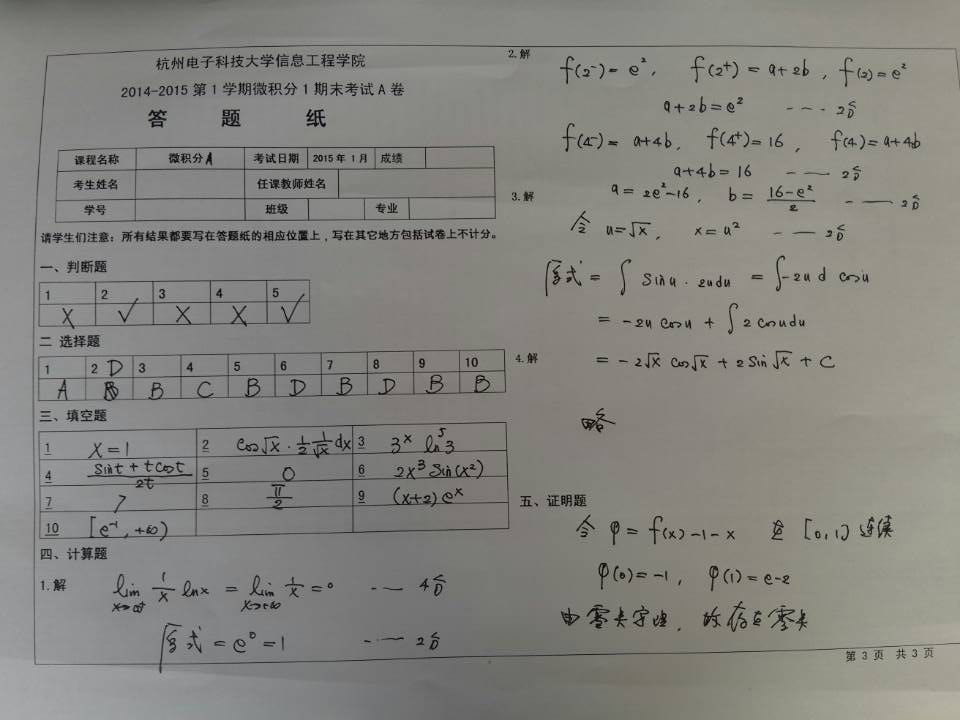 杭州电子科技大学信息工程学院
2014-2015 第 1 学期微积分 1 期末考试 A 卷
答 题 纸
课程名称 微积分A 考试日期 2015 年 1 月 成绩
考生姓名 任课教师姓名
学号 班级 专业
请学生们注意：所有结果都要写在答题纸的相应位置上，写在其它地方包括试卷上不计分。
一、判断题
1 2 3 4 5
X √ X X √
二 选择题
1 2 D 3 4 5 6 7 8 9 10
A B C B D B D B B
三、填空题
1 x=1 2 cos√x · 1/2 1/√x dx 3 3^x ln^5 3
4 (sint + tcost)/2t 5 0 6 2x³ sin(x²)
7 7 8 π/2 9 (x+2)e^x
10 [e⁻¹, +∞)
四、计算题
1.解 lim x→+∞ 1/x lnx = lim x→+∞ 1/x = 0 --- 4分
原式 = e⁰ = 1 --- 2分
2.解
f(2⁻) = e², f(2⁺) = a+2b, f(2) = e²
a+2b = e² --- 2分
f(4⁻) = a+4b, f(4⁺) = 16, f(4) = a+4b
a+4b = 16 --- 2分
a = 2e²-16, b = (16-e²)/2 --- 2分
3.解
令 u=√x, x=u² --- 2分
原式 = ∫ sinu · 2udu = ∫-2u d cosu
= -2u cosu + ∫ 2cosudu
= -2√x cos√x + 2sin√x + C
4.解
略
五、证明题
令 φ = f(x)-1-x 在 [0,1] 连续
φ(0) = -1, φ(1) = e-2
由零点定理, 故存在零点
第 3 页 共 3 页